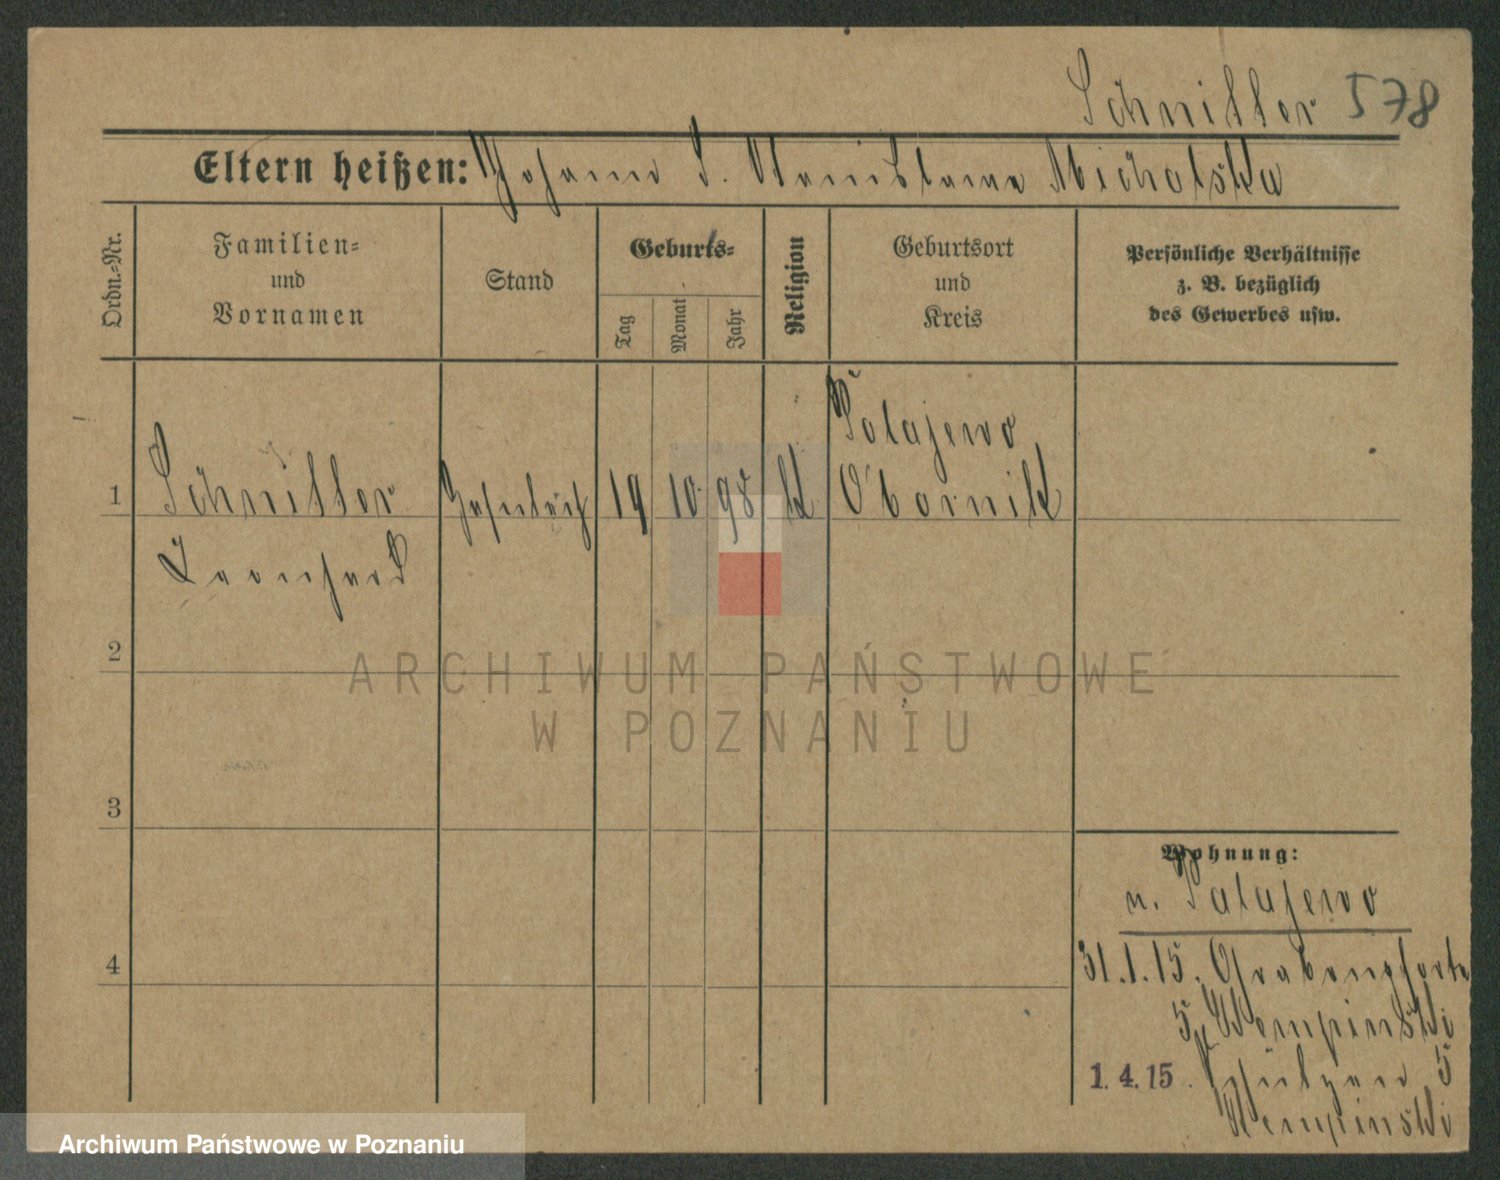 Schnitter 578
Eltern heißen: Johann S. Stanislawa Michalska
Ordn.-Nr.
Familien-
und
Vornamen
Stand
Geburts-
Tag
Monat
Jahr
Religion
Geburtsort
und
Kreis
Persönliche Verhältnisse
z. B. bezüglich
des Gewerbes usw.
1
Schnitter
Leonhard
19 10 98 k
Polajewo
Obornik
2
3
4
Wohnung:
n. Polajewo
31.1.15. Grabenpforte
5 Wempinski
1.4.15. Schützen 5
Wempinski
ARCHIWUM PAŃSTWOWE
W POZNANIU
Archiwum Państwowe w Poznaniu